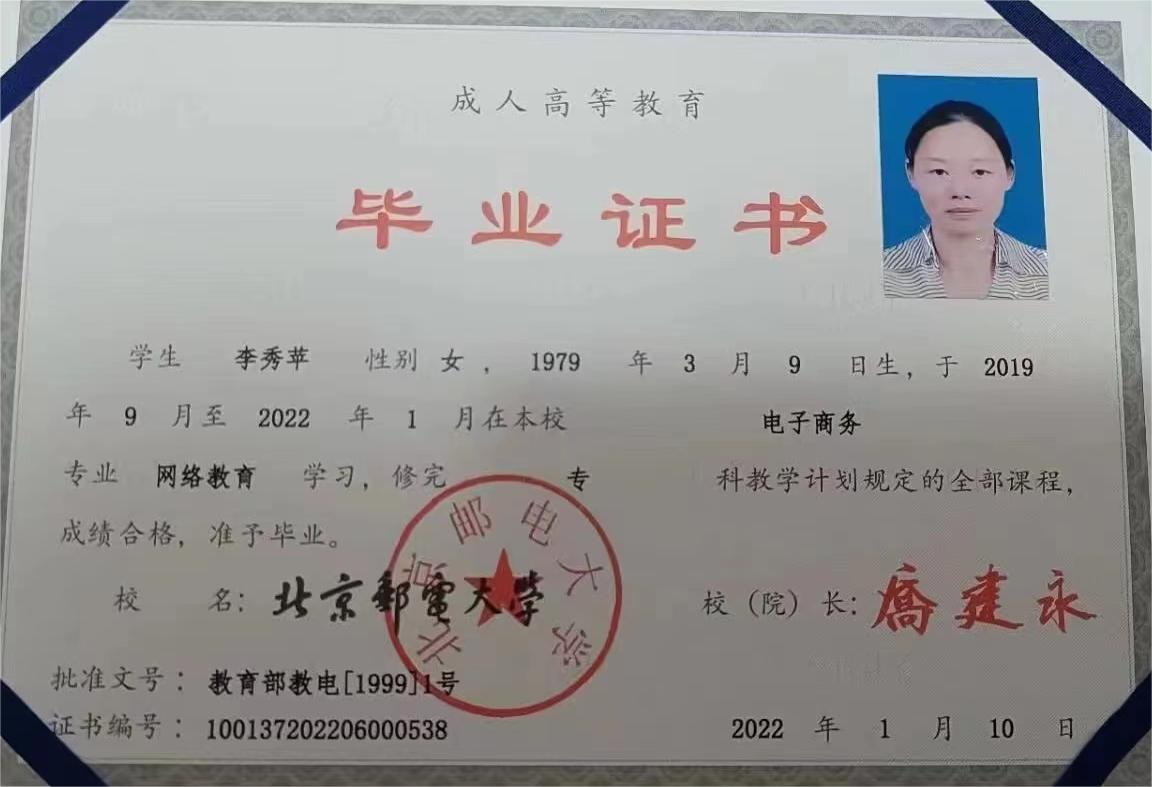 成人高等教育
毕业证书
学生 李秀苹 性别 女 ， 1979 年 3 月 9 日生，于 2019
年 9 月至 2022 年 1 月在本校 电子商务
专业 网络教育 学习，修完 专 科教学计划规定的全部课程，
成绩合格，准予毕业。
校 名：北京郵電大学 校（院）长：喬建永
北京邮电大学
批准文号：教育部教电[1999]1号
证书编号：100137202206000538 2022 年 1 月 10 日